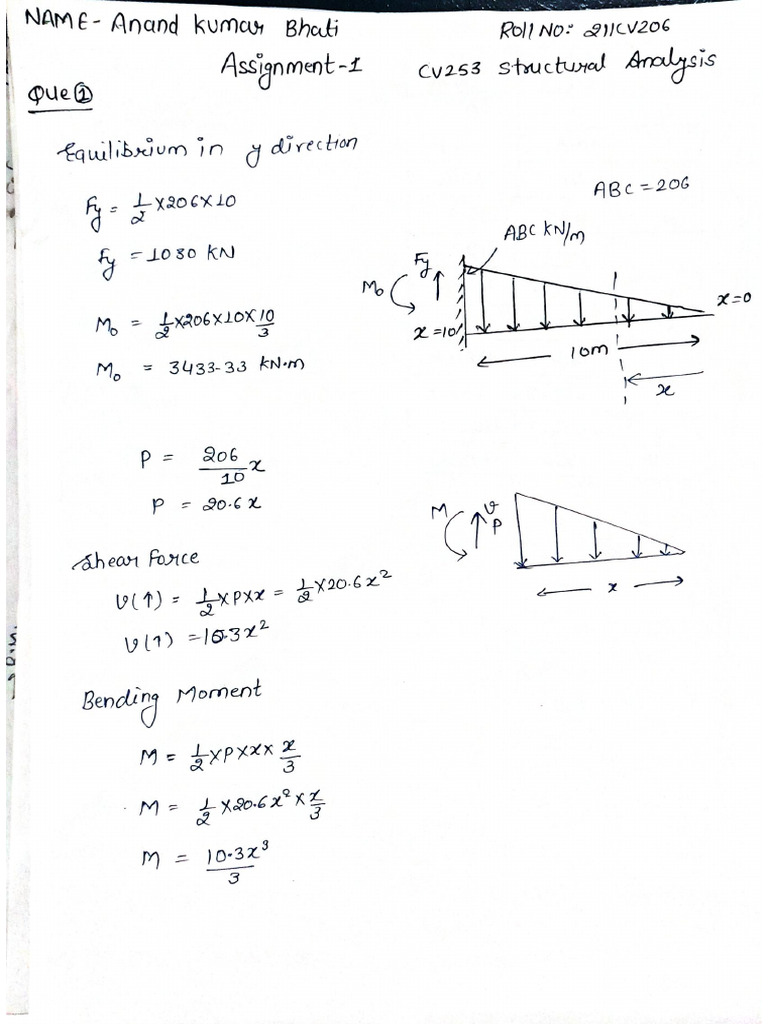 NAME- Anand Kumar Bhati
Roll No: 211CV206
Assignment-1
CV253 Structural Analysis
Que ①
Equilibrium in y direction
ABC = 206
Fy = 1/2 × 206 × 10
Fy = 1030 KN
M₀ = 1/2 × 206 × 10 × 10/3
M₀ = 3433.33 KN.m
ABC KN/m
Fy
M₀
x = 10
x = 0
10m
x
P = 206/10 x
P = 20.6 x
M
v
P
x
Shear Force
v(↑) = 1/2 × P × x = 1/2 × 20.6 x²
v(↑) = 10.3 x²
Bending Moment
M = 1/2 × P × x × x/3
M = 1/2 × 20.6 x² × x/3
M = 10.3 x³/3